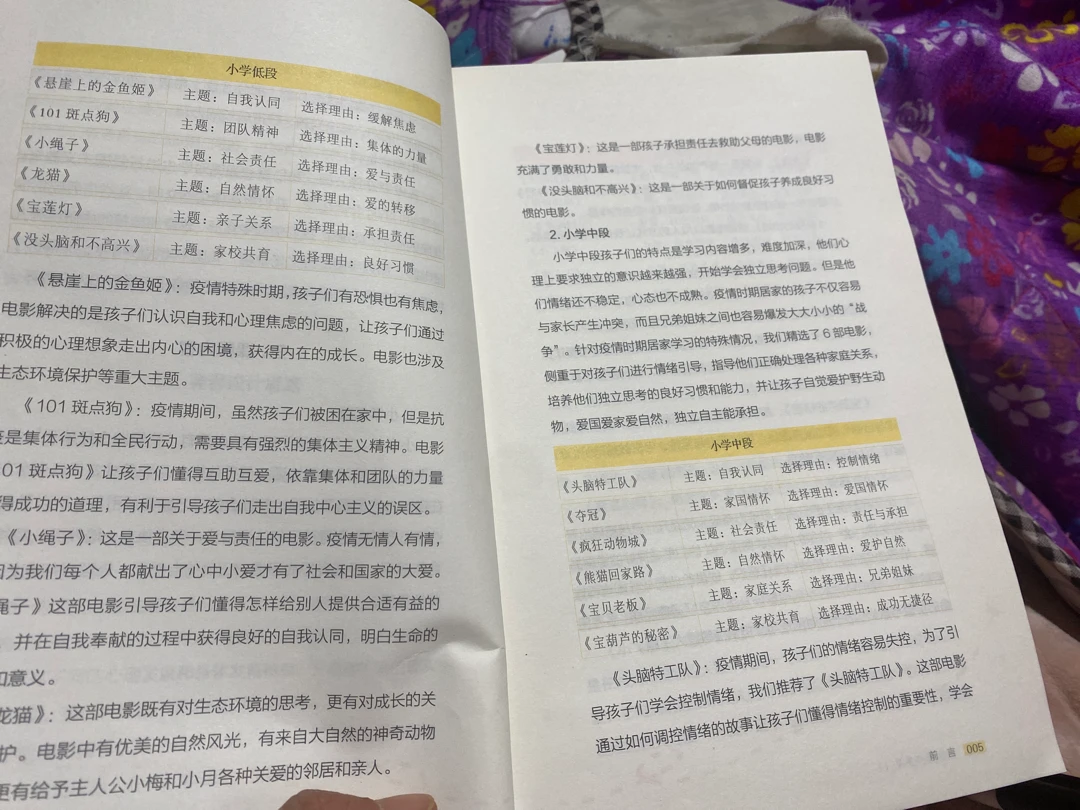 小学低段
《悬崖上的金鱼姬》 主题：自我认同 选择理由：缓解焦虑
《101斑点狗》 主题：团队精神 选择理由：集体的力量
《小绳子》 主题：社会责任 选择理由：爱与责任
《龙猫》 主题：自然情怀 选择理由：爱的转移
《宝莲灯》 主题：亲子关系 选择理由：承担责任
《没头脑和不高兴》 主题：家校共育 选择理由：良好习惯
《悬崖上的金鱼姬》：疫情特殊时期，孩子们有恐惧也有焦虑，
电影解决的是孩子们认识自我和心理焦虑的问题，让孩子们通过
积极的心理想象走出内心的困境，获得内在的成长。电影也涉及
生态环境保护等重大主题。
《101斑点狗》：疫情期间，虽然孩子们被困在家中，但是抗
疫是集体行为和全民行动，需要具有强烈的集体主义精神。电影
01斑点狗》让孩子们懂得互助互爱，依靠集体和团队的力量
得成功的道理，有利于引导孩子们走出自我中心主义的误区。
《小绳子》：这是一部关于爱与责任的电影。疫情无情人有情，
因为我们每个人都献出了心中小爱才有了社会和国家的大爱。
绳子》这部电影引导孩子们懂得怎样给别人提供合适有益的
，并在自我奉献的过程中获得良好的自我认同，明白生命的
和意义。
龙猫》：这部电影既有对生态环境的思考，更有对成长的关
护。电影中有优美的自然风光，有来自大自然的神奇动物
更有给予主人公小梅和小月各种关爱的邻居和亲人。
《宝莲灯》：这是一部孩子承担责任去救助父母的电影，电影
充满了勇敢和力量。
《没头脑和不高兴》：这是一部关于如何督促孩子养成良好习
惯的电影。
2. 小学中段
小学中段孩子们的特点是学习内容增多，难度加深，他们心
理上要求独立的意识越来越强，开始学会独立思考问题。但是他
们情绪还不稳定，心态也不成熟。疫情时期居家的孩子不仅容易
与家长产生冲突，而且兄弟姐妹之间也容易爆发大大小小的“战
争”。针对疫情时期居家学习的特殊情况，我们精选了6部电影，
侧重于对孩子们进行情绪引导，指导他们正确处理各种家庭关系，
培养他们独立思考的良好习惯和能力，并让孩子自觉爱护野生动
物，爱国爱家爱自然，独立自主能承担。
小学中段
《头脑特工队》 主题：自我认同 选择理由：控制情绪
《夺冠》 主题：家国情怀 选择理由：爱国情怀
《疯狂动物城》 主题：社会责任 选择理由：责任与承担
《熊猫回家路》 主题：自然情怀 选择理由：爱护自然
《宝贝老板》 主题：家庭关系 选择理由：兄弟姐妹
《宝葫芦的秘密》 主题：家校共育 选择理由：成功无捷径
《头脑特工队》：疫情期间，孩子们的情绪容易失控，为了引
导孩子们学会控制情绪，我们推荐了《头脑特工队》。这部电影
通过如何调控情绪的故事让孩子们懂得情绪控制的重要性，学会
前言 005